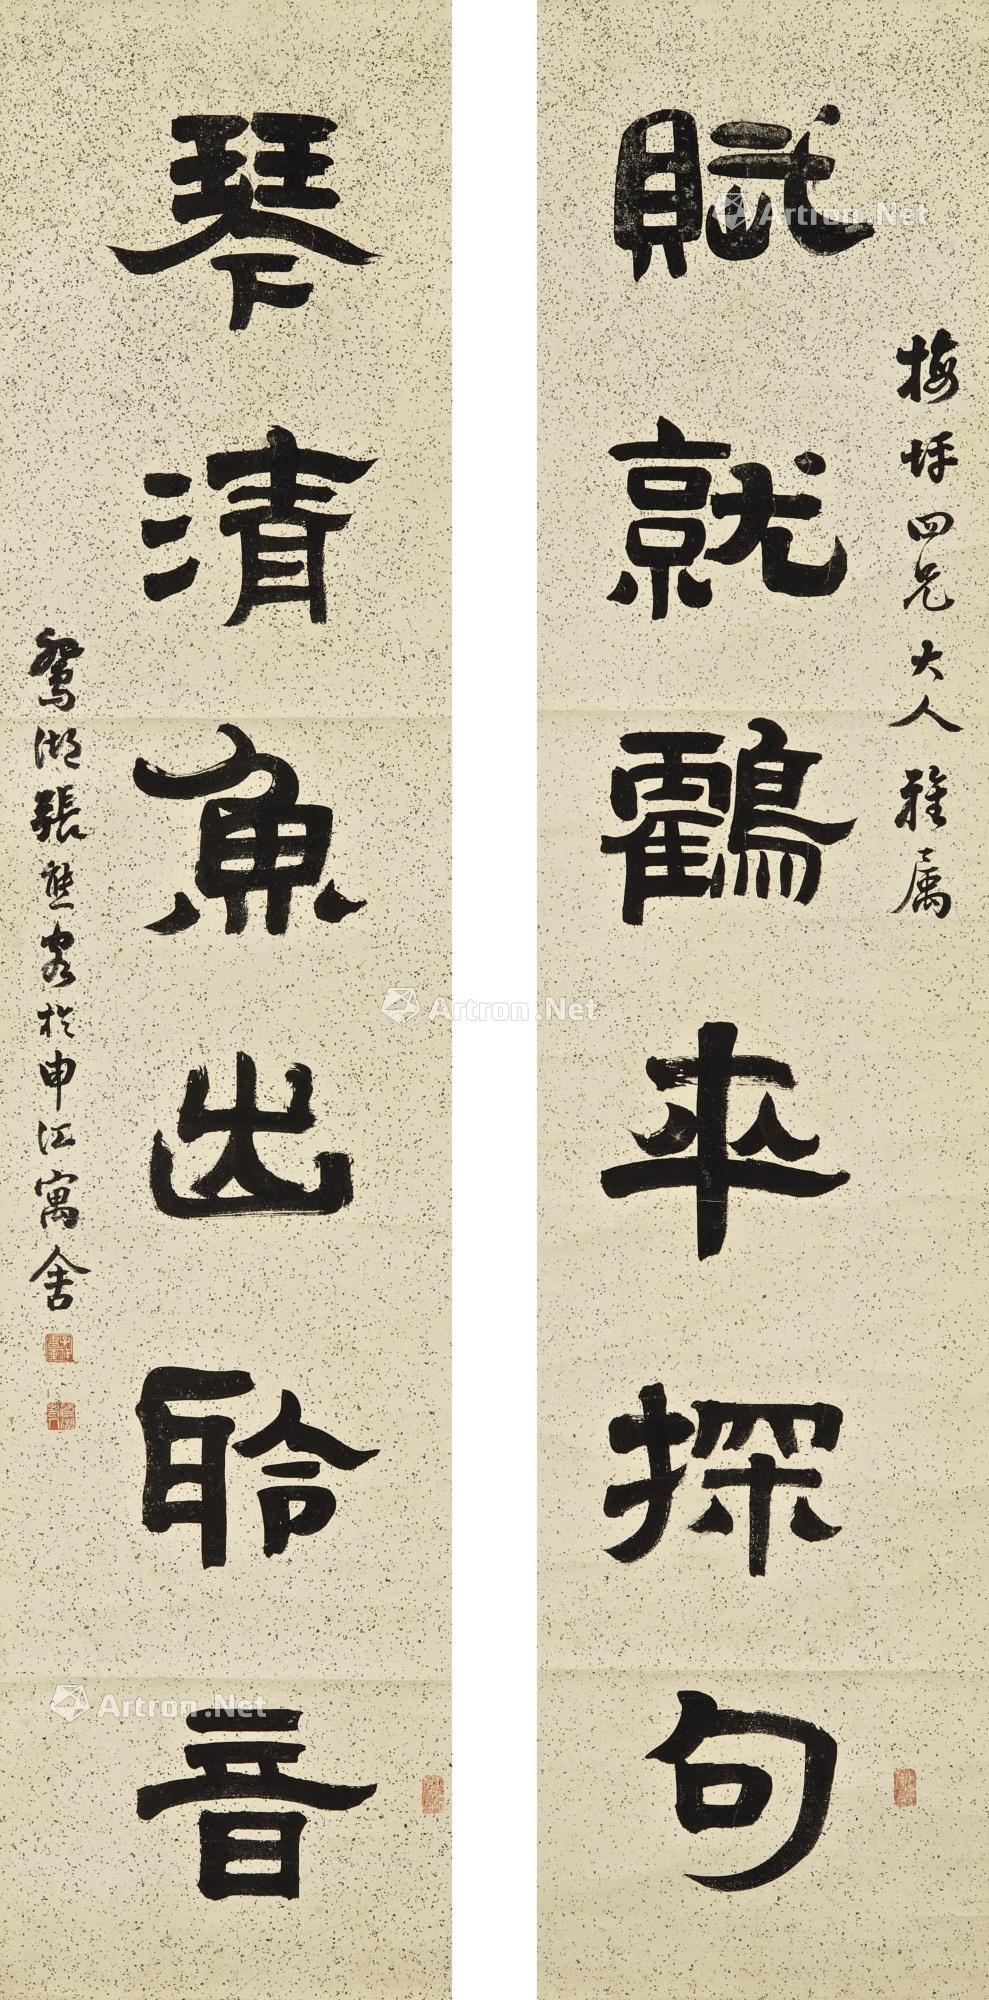 梅坪四兄大人雅属
賦就鶴来探句
琴清魚出聆音
鴛湖張熊客於申江寓舍
Artron.Net
Artron.Net
Artron.Net